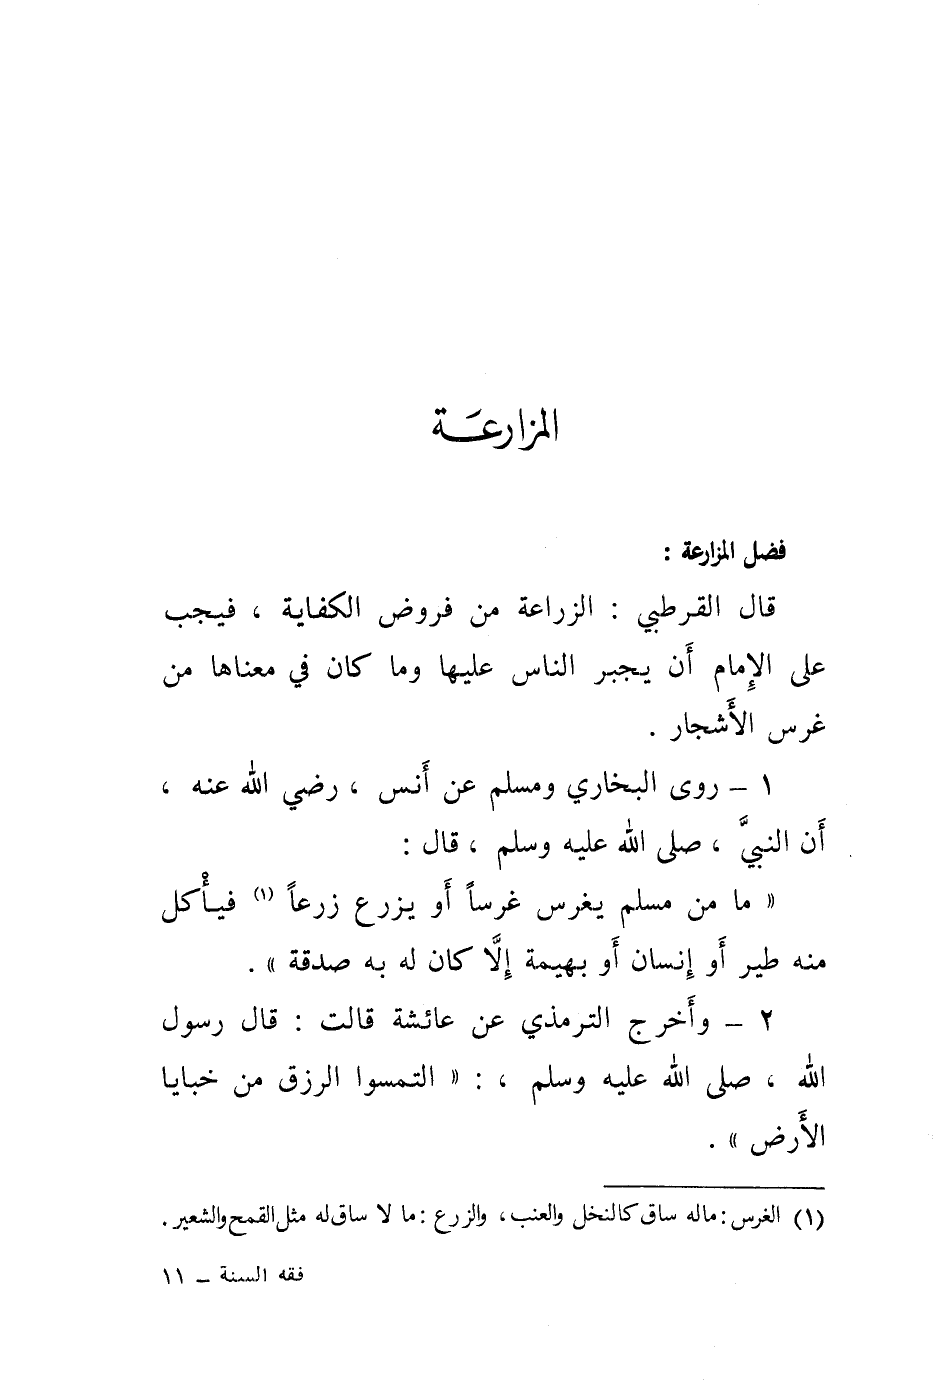 المزارعَة
فضل المزارعة :
قال القرطبي : الزراعة من فروض الكفاية ، فيجب
على الإِمام أَن يجبر الناس عليها وما كان في معناها من
غرس الأَشجار .
١ – روى البخاري ومسلم عن أَنس ، رضي الله عنه ،
أَن النبيَّ ، صلى الله عليه وسلم ، قال :
« ما من مسلم يغرس غرساً أَو يزرع زرعاً (١) فيأْكل
منه طير أَو إِنسان أَو بهيمة إِلَّا كان له به صدقة » .
٢ – وأَخرج الترمذي عن عائشة قالت : قال رسول
الله ، صلى الله عليه وسلم ، : « التمسوا الرزق من خبايا
الأَرض » .
(١) الغرس : ماله ساق كالنخل والعنب ، والزرع : ما لا ساق له مثل القمح والشعير .
فقه السنة – ١١